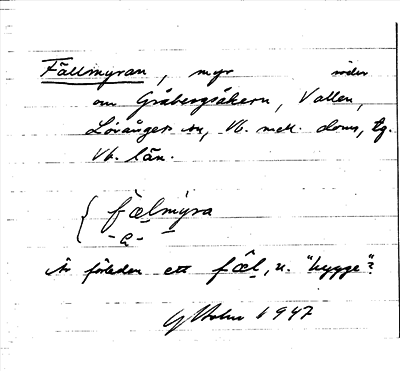 Fällmyran, myr söder
om Gråbergsåkern, Vallen,
Lövångers sn, Vb. mell. doms, tg.
Vb. län.
{ fælmyra
-a-
Är förleden ett fæl, n. "bygge"?
Holm 1947